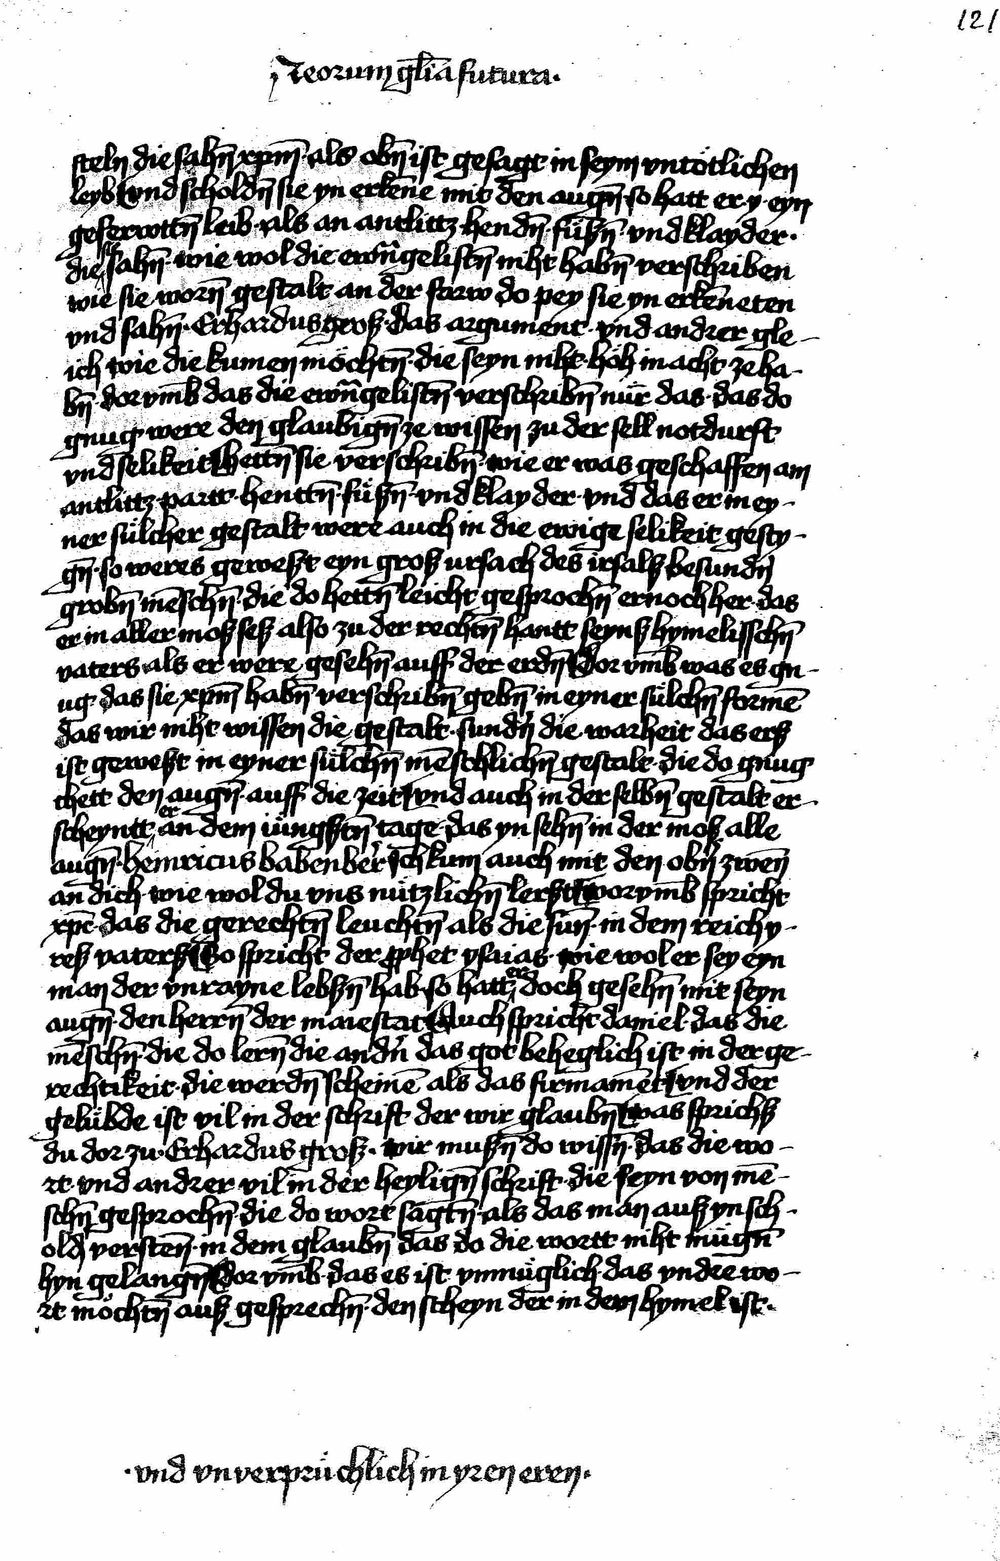 121
Reorum gl̄ia futura·
steln die sahn̄ xpm̄· als obn̄ ist gesagt in seym vntötlichen
leyb vnd scholdn̄ sie yn erken̄e mit den augn̄· so hatt er y· eyn
geferwttn̄ leib· als an antlittz hendn̄· fűszn̄ vnd klayder·
die sahn̄· wie wol die ewāgelistn̄ niht habn̄ verschriben
wie sie worn̄ gestalt an der farw do pey sie yn erkēneten
vnd sahn̄· Erhardus grosz· das argument· vnd andrer gle-
ich wie die kumen möchtn̄· die seyn niht· höh in acht ze ha-
bn̄· dor vm̄b das die ewāgelistn̄ verschribn̄ nür das· das do
gnug were den glaubign̄ ze wissen zu der sell notdurft
vnd selikeit hettn̄ sie verschribn̄· wie er was geschaffen am
antlittz· partt· henttn̄· füszn̄· vnd klayder· vnd das er in ey-
ner sülcher gestalt were auch in die ewige selikeit gesty-
gn̄· so weres geweszt eyn grosz ursach des irsalsz besundn̄
grobn̄ mēschn̄· die do hettn̄ leicht gesprochn̄ er noch her· das
er in aller mosz sesz also zu der rechtn̄ hantt seynsz hymelisschn̄
vaters als er were gesehn̄ auff der erdn̄ Dor vm̄b was es gn-
ug· das sie xpm̄ habn̄ verschribn̄ gebn̄ in eyner sülchn̄ formē
das wir niht wissen die gestalt· sundn̄ die warheit das ersz
ist geweszt in eyner sülchn̄ mēschlichn̄ gestalt· die do gnug
thett den augn̄· auff die zeit vnd auch in der selbn̄ gestalt er-
scheyntt er an dem iüngsztn̄ tage· das yn sehn̄ in der mosz alle
augn̄· heinricus babenber̄ Ich kum auch mit den obn̄ zwen̄
an dich· wie wol du vns nützlichn̄ lerszt worvm̄b spricht
xp̄c· das die gerechtn̄ leuchtn̄ als die sun̄· in dem reich y-
resz vatersz So spricht der pphet ysaias· wie wol er sey eyn
man der vnrayne lebszn̄ hab· so hatt er doch gesehn̄ mit seyn
augn̄· den herrn̄ der maiestat Auch spricht daniel· das die
mēschn̄· die do lern̄ die andn̄ das got beheglich ist in der ge-
rechtikeit· die werdn̄ scheinē als das firmamēt vnd der
gelübde ist vil in der schrift der wir glaubn̄ was sprichsz
du dor zu· Erhardus grosz· wir muszn̄ do wissn̄· das die wo-
rt vnd andrer vil in der heylign̄ schrift· die seyn von mē-
schn̄ gesprochn̄· die do wort sagtn̄· als das man ausz yn sch-
old versten̄· in dem glaubn̄ das do die wortt niht mügn̄
hyn gelangn̄ Dor vm̄b· das es ist vnmüglich· das vndre wo-
rt möchtn̄ ausz gesprechn̄· den scheyn der in dem hymel ist·
·vnd vnverprüchlich in yren eren·